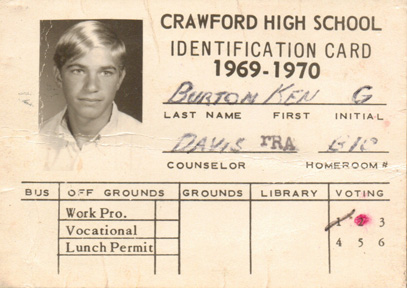 CRAWFORD HIGH SCHOOL
IDENTIFICATION CARD
1969-1970
BURTON KEN G
LAST NAME FIRST INITIAL
DAVIS TRA G10
COUNSELOR HOMEROOM #
BUS OFF GROUNDS GROUNDS LIBRARY VOTING
Work Pro.
1 2 3
Vocational
Lunch Permit
4 5 6